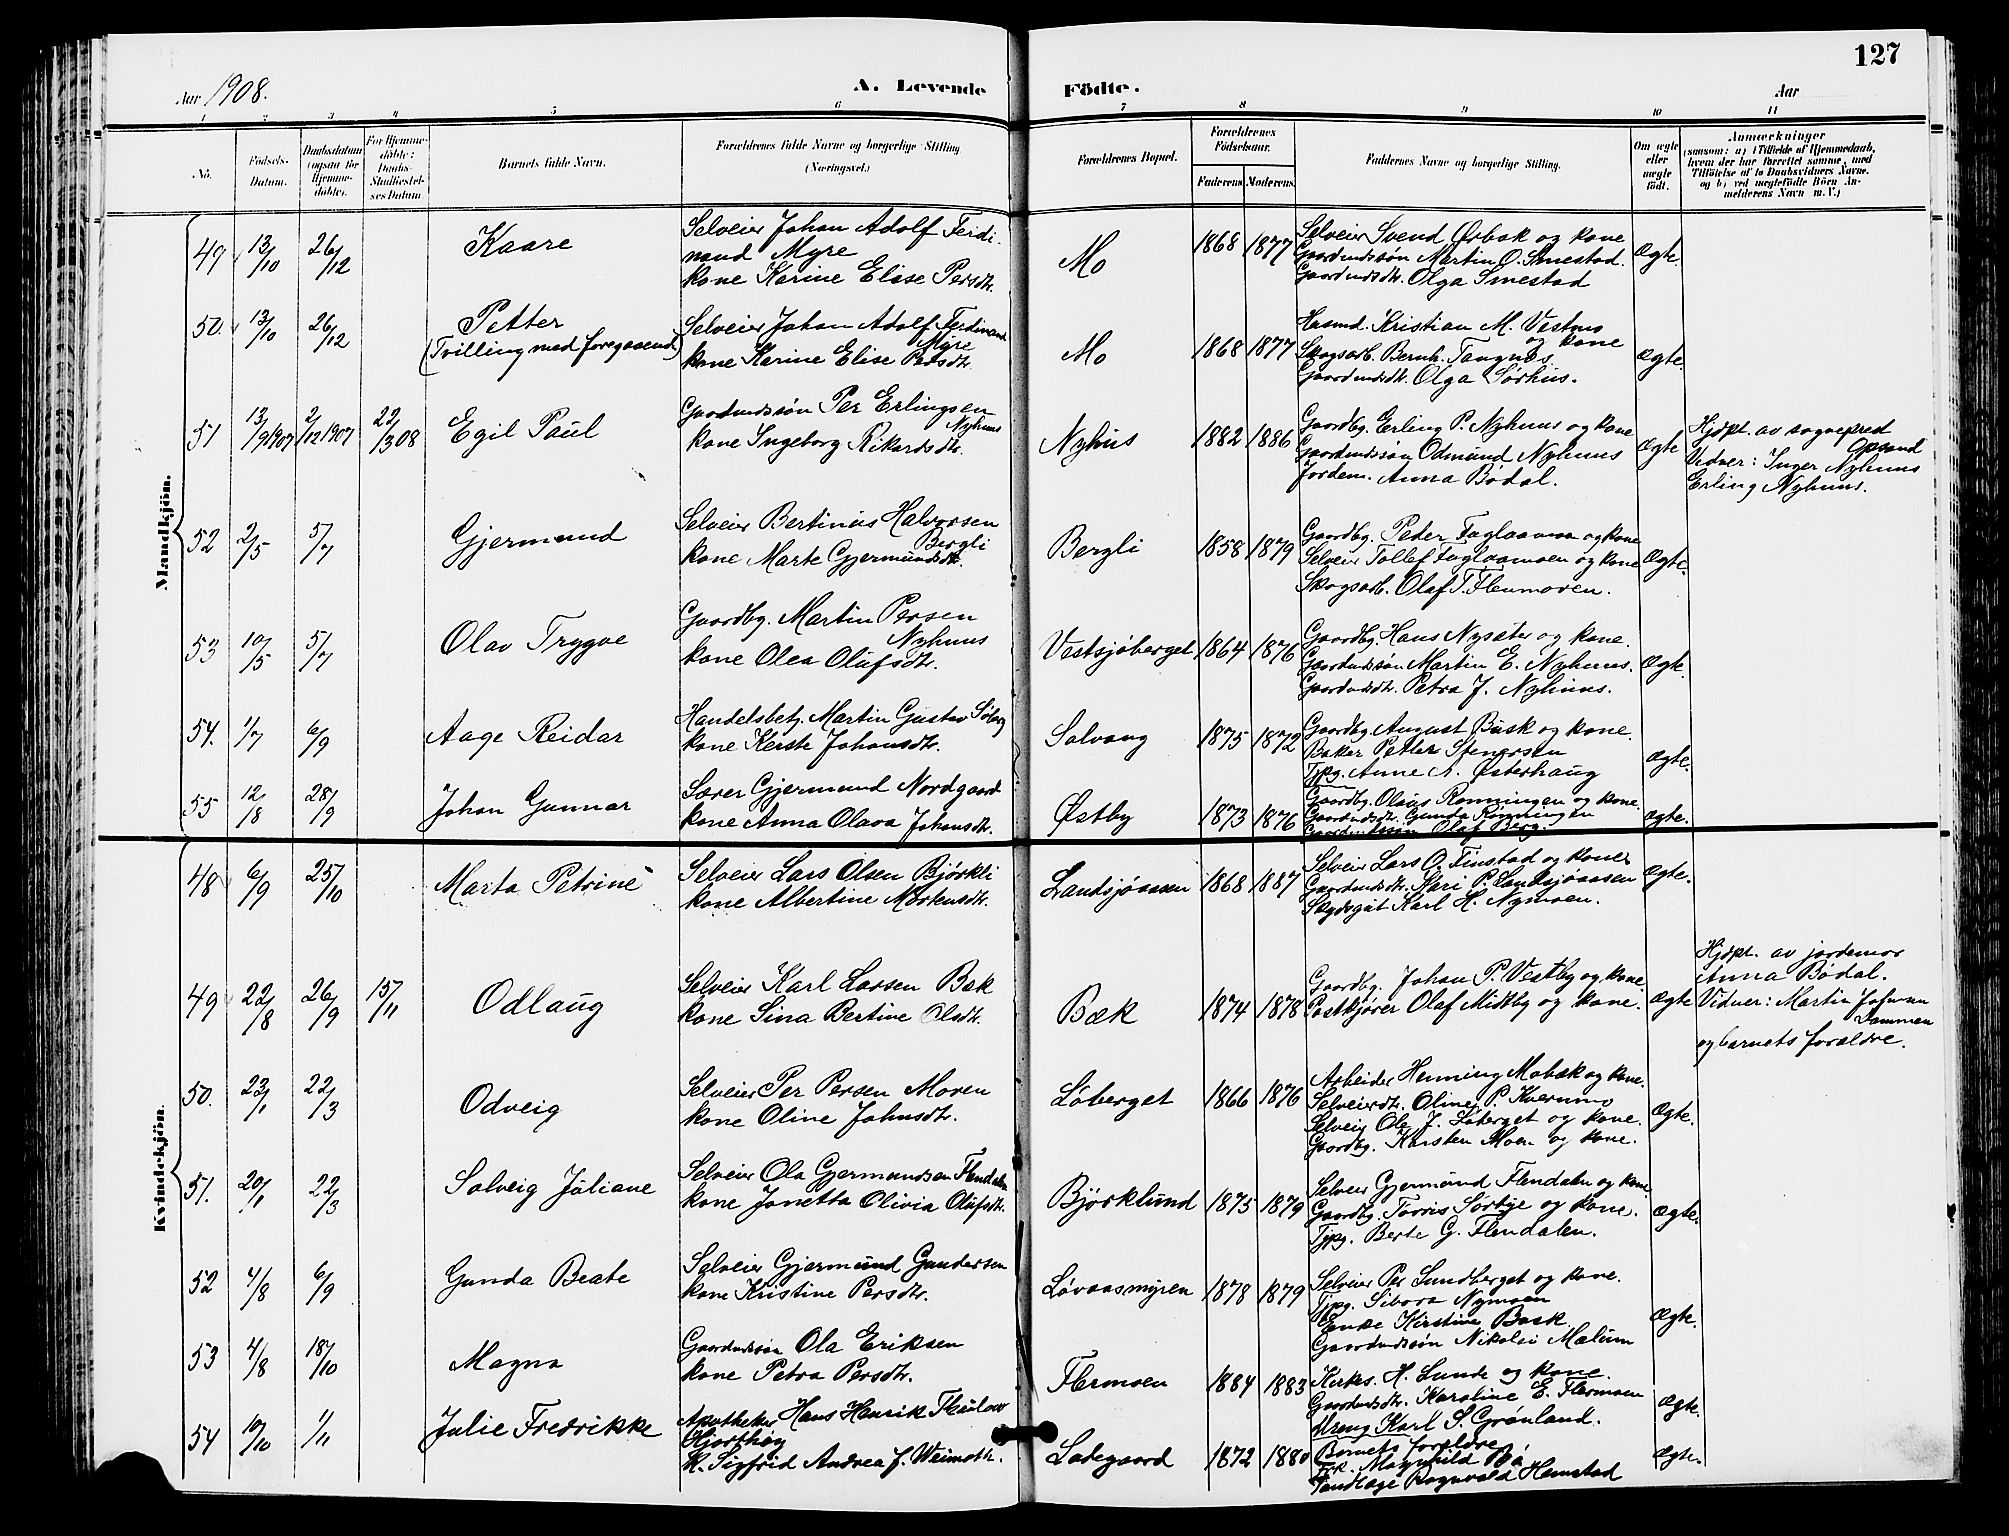 127
Aar 1908.
A. Levende Födte.
Aar
1 2 3 4 5 6 7 8 9 10 11
No.
Födsels-Datum.
Daabsdatum (ogsaa for Hjemmedöbte).
For Hjemmedöbte: Daabs-Stadfæstelses Datum.
Barnets fulde Navn.
Forældrenes fulde Navne og borgerlige Stilling (Næringsvei.)
Forældrenes Bopæl.
Forældrenes Födselsaar.
Faderens Moderens.
Faddernes Navne og borgerlige Stilling.
Om ægte eller uægte födt.
Anmærkninger
(saasom: a) i Tilfælde af Hjemmedaab,
hvem der har forrettet samme, med
Tilföielse af to Daabsvidners Navne.
og b) ved uægtefödte Börn An-
melderens Navn m. V.)
Mandkjön.
49 13/10 26/12
Kaare
Selveier Johan Adolf Ferdi-
nand Myre
kone Karine Elise Persdtr.
Mo
1868 1877
Selveier Svend Ørbæk og kone
Gaardmdssøn Martin O. Smestad.
Gaardmdsdtr. Olga Smestad
Ægte.
50. 13/10 26/12
Petter
(Tvilling med foregaaend)
Selveier Johan Adolf Ferdinand
Myre
kone Karine Elise Persdtr.
Mo
1868 1877
Husmd. Kristian M. Vestmo
og kone
Skogsarb. Bernh. Tangnes.
Gaardmdsdtr. Olga Sørhus.
Ægte.
51 13/9 1907 2/12 1907 22/3 08
Egil Paul
Gaardmdssøn Per Erlingsen
Nyhuus
kone Ingeborg Rikardsdtr.
Nyhus
1882 1886
Gaardbg. Erling P. Nyhuus og kone
Gaardmdssøn Odmund Nyhuus
Jordem. Anna Bødal.
Ægte
Hjdpt. av sogneprest
Opsand
Vidner: Inger Nyhuus
Erling Nyhuus.
52 2/5 5/7
Gjermund
Selveier Bertinius Halvorsen
Bergli
kone Marte Gjermundsdtr.
Bergli
1858 1879
Gaardbg. Peder Faglaamoen og kone
Selveier Tollef Faglaamoen og kone
Skogsarb. Olaf T. Flenmoren.
Ægte.
53 10/5 5/7
Olav Trygve
Gaardbg. Martin Persen
Nyhuus
kone Olea Olufsdtr.
Vestsjøberget
1864 1876
Gaardbg. Hans Nysæter og kone.
Gaardmdssøn Martin E. Nyhuus.
Gaardmdsdtr. Petra J. Nyhuus.
Ægte.
54. 1/7 6/9
Aage Reidar
Handelsbetj. Martin Gustav
kone Kerste Johansdtr.
Solvang
1875 1872
Gaardbg. August Busk og kone.
Baker Petter Stenersen
Tjpg. Anne A. Østerhaug
Ægte.
55 12/8 28/9
Johan Gunnar
Lærer Gjermund Nordgaard
kone Anna Olava Johansdtr.
Østby
1873 1876
Gaardbg. Olaus Rønningen og kone.
Gaardmdsdtr. Gunda Rønningen
Gaardmdssøn Olaf Berg.
Ægte.
Kvindekjön.
48 6/9 25/10
Marta Petrine
Selveier Lars Olsen Bjørkli
kone Albertine Mortensdtr.
Landsjøaasen
1868 1887
Selveier Lars O. Finstad og kone
Gaardmdsdtr. Kari P. Landsjøaasen
Skydsgut Karl H. Nymoen.
Ægte.
49 22/8 26/9 15/11
Odlaug
Selveier Karl Larsen Bæk
kone Lina Bertine Olsdtr.
Bæk
1874 1878
Gaardbg. Johan P. Vestby og kone.
Postkjører Olaf Midtby og kone.
Ægte
Hjdpt. av jordemor
Anna Bødal.
Vidner: Martin Johnsen
Dammen
og barnets forældre.
50. 23/1 22/3
Odveig
Selveier Per Persen Moren
kone Oline Johnsdtr.
Løberget
1866 1876
Arbeider Henning Mobæk og kone.
Selveierdtr. Oline P. Kvernmo
Selveig Ole J. Løberget og kone.
Gaardbg. Karsten Moen og kone.
Ægte.
51. 20/1 22/3
Solveig Juliane
Selveier Ola Gjermundsen Flendalen
kone Jonetta Olivia Olufsdtr.
Bjørklund
1875 1879
Selveier Gjermund Flendalen og kone
Gaardbg. Torris Sørbye og kone.
Tjpg. Berte G. Flendalen.
Ægte.
52 4/8 6/9
Gunda Beate
Selveier Gjermund Gundersen
kone Kristine Persdtr.
Løvaasmyren
1878 1879
Selveier Per Sundberget og kone.
Tjpg. Sibora Nymoen
Enke Kirstine Bæk.
Gaardmdssøn Nikolai Mælum
Ægte.
53 4/8 18/10
Magna
Gaardmdssøn Ola Eriksen
kone Petra Persdtr.
Flermoen
1884 1883
Kirkes. H. Lunde og kone.
Gaardmdsdtr. Karoline E. Flermoen
Dreng Karl S. Grønland.
Ægte.
54 10/10 1/11
Julie Fredrikke
Apotheker Hans Henrik Thaulow
Hjorthøy
k. Sigfrid Andrea f. Weimoth.
Ladegaard
1872 1880
Barnets forældre
Frk. Magnhild Bø
Tandlæge Rognvald Hamstad
Ægte.